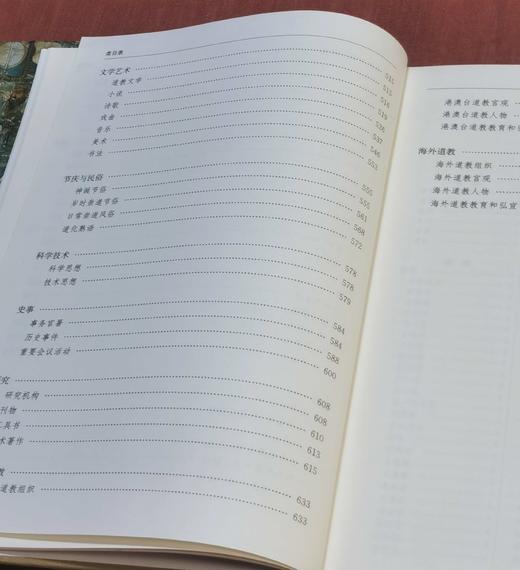 类目表
文学艺术
道教文学 515
小说 516
诗歌 519
戏曲 526
音乐 537
美术 546
书法 553
节庆与民俗 555
神诞节俗 555
岁时崇道节俗 561
日常崇道风俗 568
道化熟语 572
科学技术 578
科学思想 578
技术思想 579
史事 584
事务官署 584
历史事件 588
重要会议活动 600
究 608
研究机构 608
刊物 610
工具书 613
术著作 615
教 633
道教组织 633
港澳台道教宫观
港澳台道教人物
港澳台道教教育和
海外道教
海外道教组织
海外道教宫观
海外道教人物
海外道教教育和弘宣